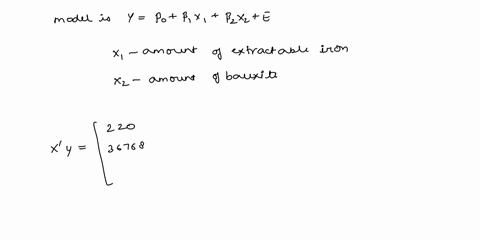 model is Y = β₀ + β₁ x₁ + β₂ x₂ + E
x₁ – amount of extractable iron
x₂ – amount of bauxite
x'y = [ 220
36768